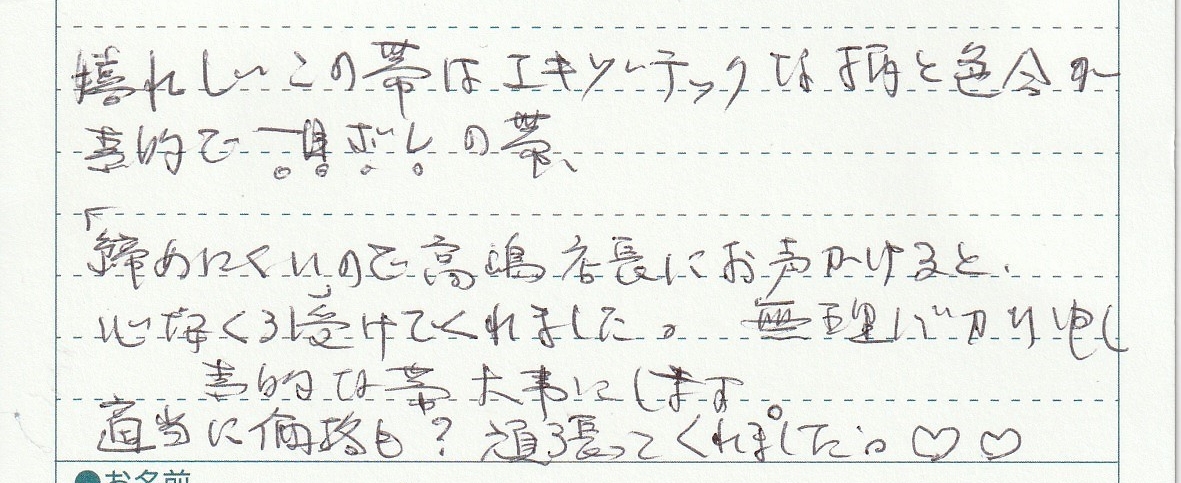 嬉しい この帯はエキゾーテックな柄と色合が
素的で 一目ボレの帯、
「締めにくいので高嶋店長にお声かけると、
心好く引受けてくれました。 無理ばかり申し
素的な帯大事にします。
適当に価格も？頑張ってくれました。♡♡
●お名前